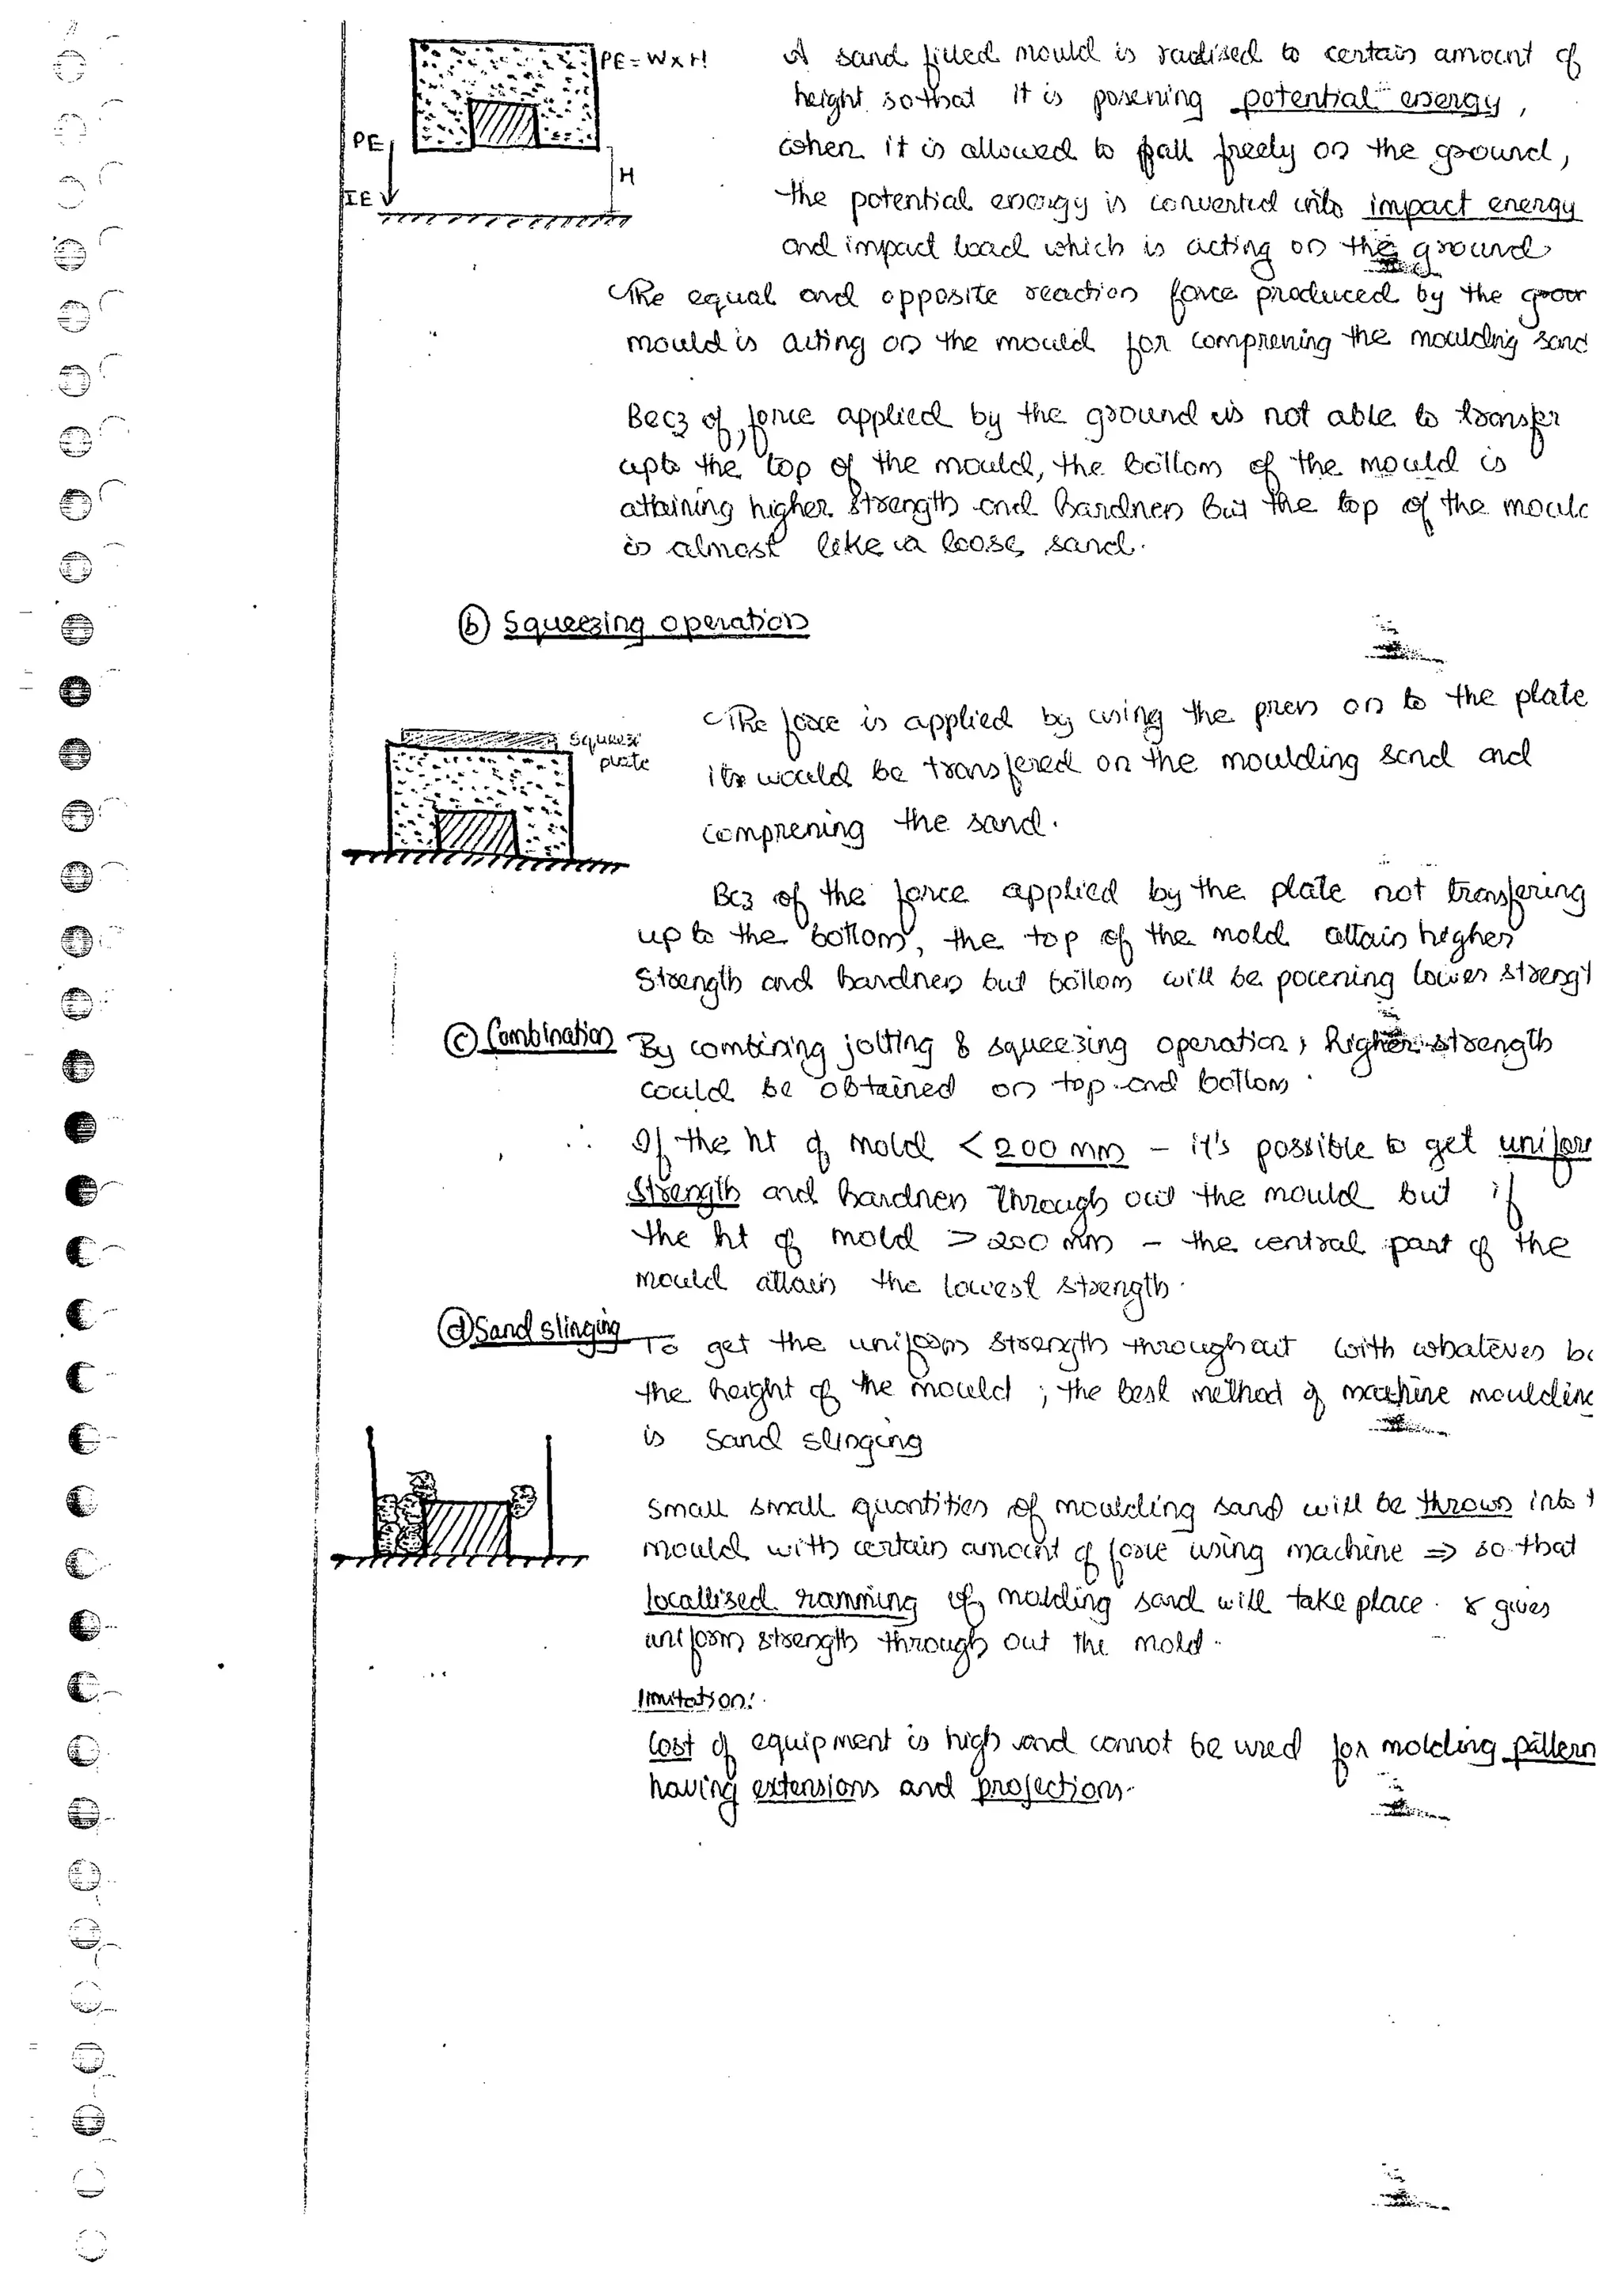 PE = W x H
PE
IE
H
A sand filled mould is radised to certain amount of
height so that it is possessing potential energy,
when it is allowed to fall freely on the ground,
the potential energy is converted into impact energy
and impact load which is acting on the ground
The equal and opposite reaction force produced by the
mould is acting on the mould for compressing the moulding sand
Becz of force applied by the ground is not able to transfer
upto the top of the mould, the bottom of the mould is
attaining higher strength and hardness but the top of the moul
is almost like a loose sand.
(b) Squeezing operation
squeeze
plate
The force is applied by using the press on to the plate
its would be transfered on the moulding sand and
compressing the sand.
Bcz of the force applied by the plate not transfering
up to the bottom, the top of the mold attain higher
strength and hardness but bottom will be possessing lower strengt
(c) Combination By combining jolting & squeezing operation, higher strength
could be obtained on top and bottom.
∴ If the ht of mold < 200 mm - it's possible to get unifor
strength and hardness through out the mould but if
the ht of mold > 200 mm - the central part of the
mould attain the lowest strength.
(d) Sand slinging To get the uniform strength throughout with whatever be
the height of the mould ; the best method of machine moulding
is sand slinging
Small small quantities of moulding sand will be thrown into t
mould with certain amount of force using machine ⇒ so that
localised ramming of molding sand will take place. & gives
uniform strength through out the mold.
limitation:
Cost of equipment is high and cannot be used for molding pattern
having extensions and projections.